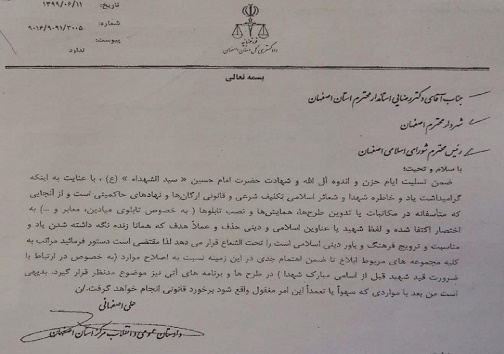 تاریخ: ۱۳۹۹/۰۶/۱۱
شماره: ۹۰۱۶/۹۰۹۱/۲۰۰۵
پیوست: ندارد
قوه قضائیه
دادگستری کل استان اصفهان
بسمه تعالی
جناب آقای دکتر رضایی استاندار محترم استان اصفهان
شهردار محترم اصفهان
رئیس محترم شورای اسلامی اصفهان
با سلام و تحیت؛
ضمن تسلیت ایام حزن و اندوه آل الله و شهادت حضرت امام حسین « سید الشهداء » (ع) ، با عنایت به اینکه
گرامیداشت یاد و خاطره شهدا و شعائر اسلامی تکلیف شرعی و قانونی ارگان‌ها و نهادهای حاکمیتی است و از آنجایی
که متأسفانه در مکاتبات یا تدوین طرح‌ها، همایش‌ها و نصب تابلوها ( به خصوص تابلوی میادین، معابر و ...) به
اختصار اکتفا شده و لفظ شهید یا عناوین اسلامی و دینی حذف و عملاً هدف که همانا زنده نگه داشته شدن یاد و
مناسبت و ترویج فرهنگ و باور دینی اسلامی است را تحت الشعاع قرار می دهد لذا مقتضی است دستور فرمائید مراتب به
کلیه مجموعه های مربوط ابلاغ تا ضمن اهتمام جدی در این زمینه نسبت به اصلاح موارد (به خصوص در ارتباط با
ضرورت قید شهید قبل از اسامی مبارک شهدا ) در طرح ها و برنامه های آتی نیز موضوع مدنظر قرار گیرد. بدیهی
است من بعد با مواردی که سهواً یا تعمداً این امر مغفول واقع شود برخورد قانونی انجام خواهد گرفت.
علی اصفهانی
دادستان عمومی و انقلاب مرکز استان اصفهان